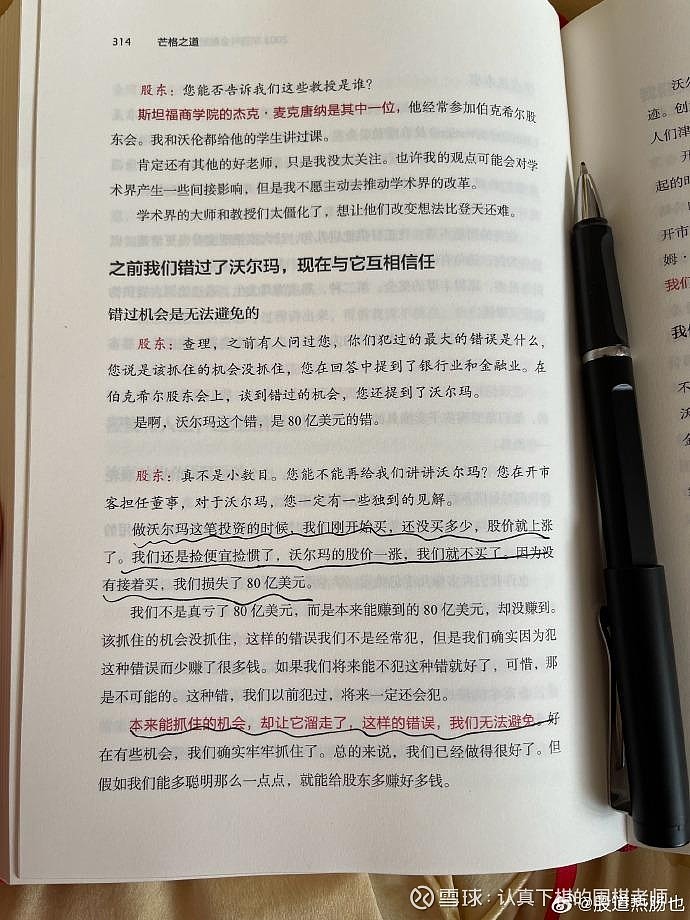 314 芒格之道
股东：您能否告诉我们这些教授是谁？
斯坦福商学院的杰克·麦克唐纳是其中一位，他经常参加伯克希尔股
东会。我和沃伦都给他的学生讲过课。
肯定还有其他的好老师，只是我没太关注。也许我的观点可能会对学
术界产生一些间接影响，但是我不愿主动去推动学术界的改革。
学术界的大师和教授们太僵化了，想让他们改变想法比登天还难。
之前我们错过了沃尔玛，现在与它互相信任
错过机会是无法避免的
股东：查理，之前有人问过您，你们犯过的最大的错误是什么，
您说是该抓住的机会没抓住，您在回答中提到了银行业和金融业。在
伯克希尔股东会上，谈到错过的机会，您还提到了沃尔玛。
是啊，沃尔玛这个错，是 80 亿美元的错。
股东：真不是小数目。您能不能再给我们讲讲沃尔玛？您在开市
客担任董事，对于沃尔玛，您一定有一些独到的见解。
做沃尔玛这笔投资的时候，我们刚开始买，还没买多少，股价就上涨
了。我们还是捡便宜捡惯了，沃尔玛的股价一涨，我们就不买了。因为没
有接着买，我们损失了 80 亿美元。
我们不是真亏了 80 亿美元，而是本来能赚到的 80 亿美元，却没赚到。
该抓住的机会没抓住，这样的错误我们不是经常犯，但是我们确实因为犯
这种错误而少赚了很多钱。如果我们将来能不犯这种错就好了，可惜，那
是不可能的。这种错，我们以前犯过，将来一定还会犯。
本来能抓住的机会，却让它溜走了，这样的错误，我们无法避免。好
在有些机会，我们确实牢牢抓住了。总的来说，我们已经做得很好了。但
假如我们能多聪明那么一点点，就能给股东多赚好多钱。
沃尔
迹。创
人们津
开
起的时
开市
姆·
我们
我
不
沃
雪球：认真下棋的围棋老师
@股道热肠也